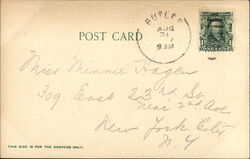 POST CARD
AUG
31
9 AM
Miss Minnie Hagen
309 East 23rd St
near 2nd Ave
New York City
N.Y
THIS SIDE IS FOR THE ADDRESS ONLY.